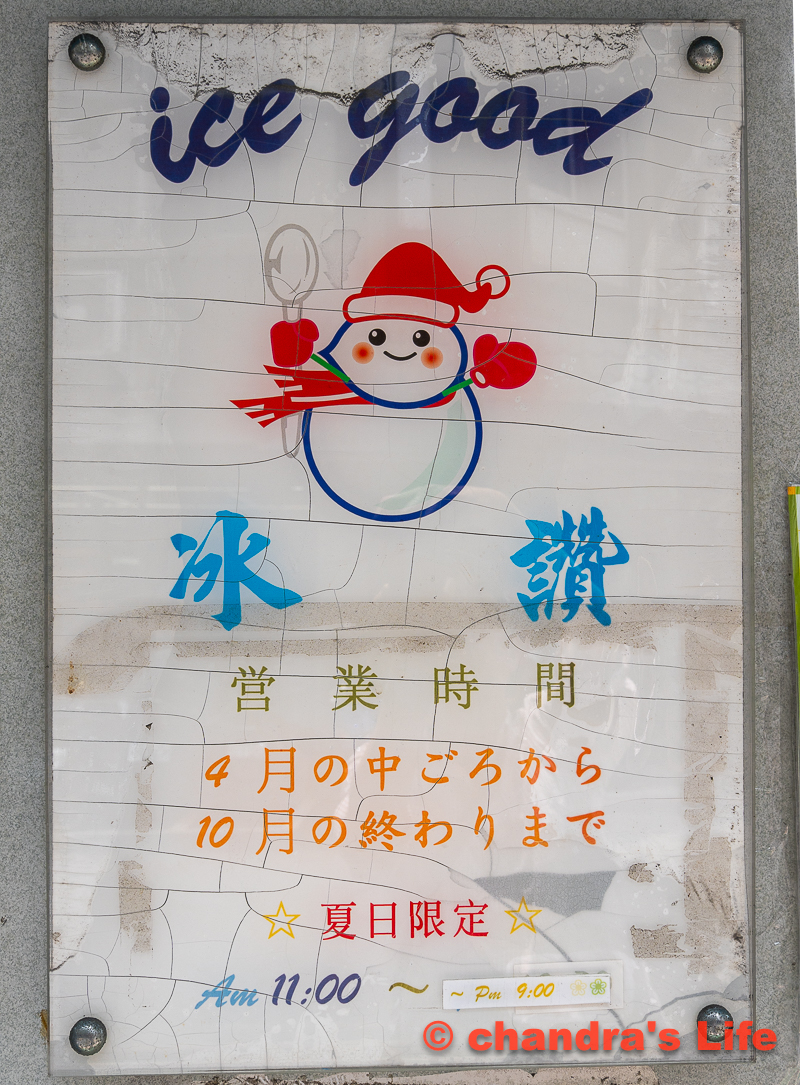 ice good
冰 讚
営業時間
4月の中ごろから
10月の終わりまで
☆夏日限定☆
Am 11:00 ～ ～ Pm 9:00
© chandra's Life